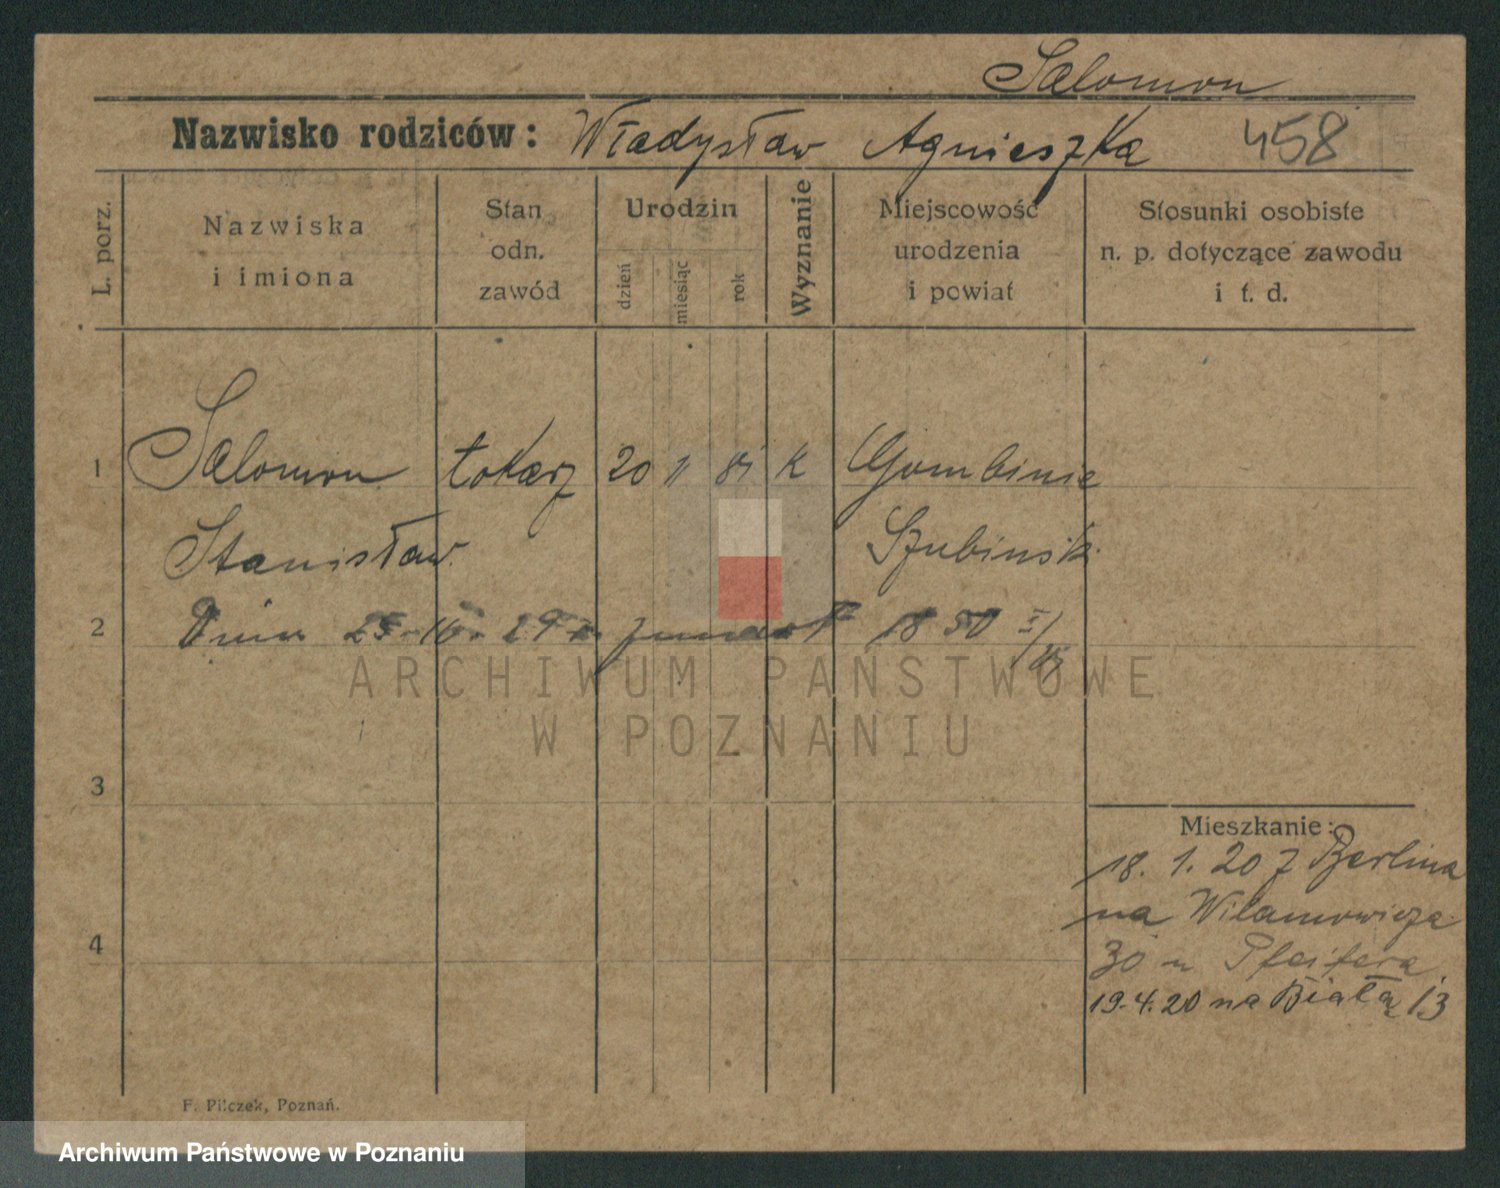 Salomon
Nazwisko rodziców: Władysław Agnieszka 458
L. porz.
Nazwiska
i imiona
Stan
odn.
zawód
Urodzin
dzień
miesiąc
rok
Wyznanie
Miejscowość
urodzenia
i powiat
Stosunki osobiste
n. p. dotyczące zawodu
i t. d.
1 Salomon tokarz 20 11 81 k Gombinie
Stanisław Szubinsk.
2 Dnia 25-10-29 r. 1850
ARCHIWUM PAŃSTWOWE
W POZNANIU
3
Mieszkanie:
18. 1. 20 z Berlina
na Wilamowicza
4
30 u Pfeifera
19.4.20 na Białą 13
F. Pilczek, Poznań.
Archiwum Państwowe w Poznaniu